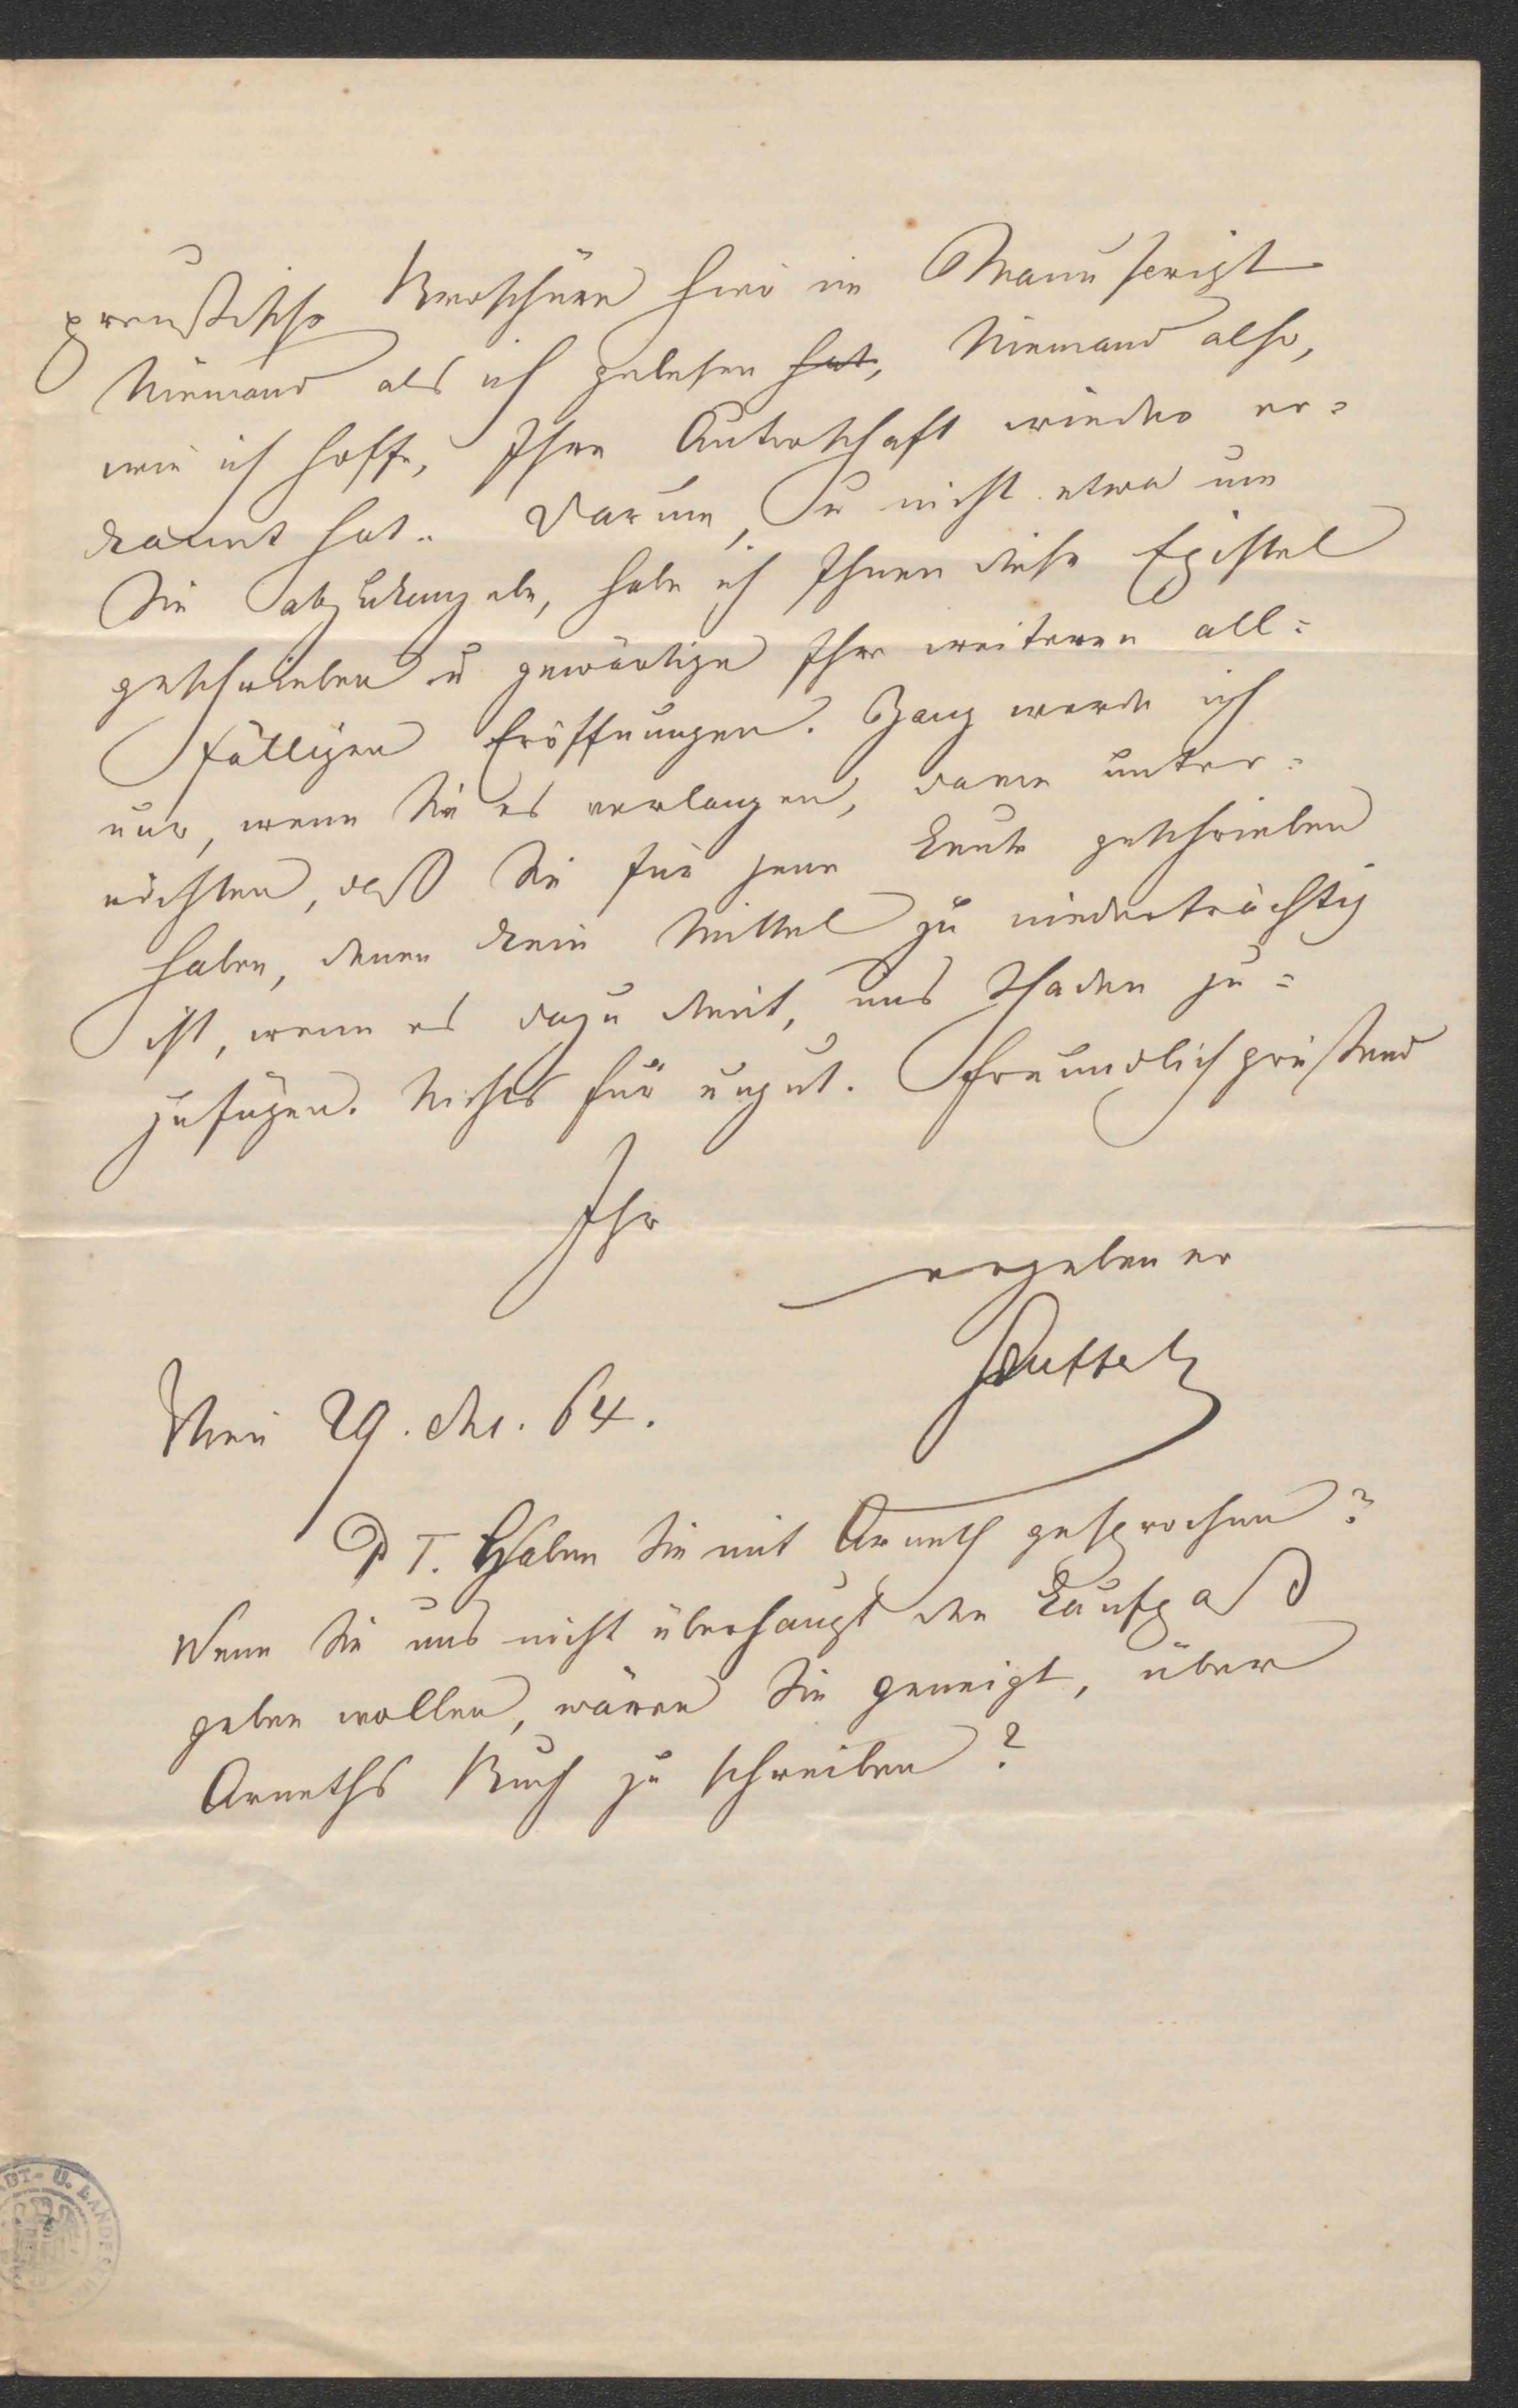 preußische Broschüre hier im Manuscript
Niemand als ich gelesen hat, Niemand also,
wie ich hoffe, Ihre Autorschaft wieder er=
kannt hat. Darum, u nicht etwa um
Sie abzukanzeln, habe ich Ihnen diese Epistel
geschrieben u gewärtige Ihre weiteren all=
fälligen Eröffnungen. Zang werde ich
nur, wenn Sie es verlangen, davon unter=
richten, daß Sie für jene Leute geschrieben
haben, denen kein Mittel zu niederträchtig
ist, wenn es dazu dient, uns Schaden zu=
zufügen. Nichts für ungut. Freundlich grüßend
Ihr
ergebener
Wien 29. 64.
P T. Haben Sie mit Arneth gesprochen?
Wenn Sie uns nicht überhaupt den Laufpaß
geben wollen, wären Sie geneigt, über
Arneths Buch zu schreiben?
ADT- U. LANDES